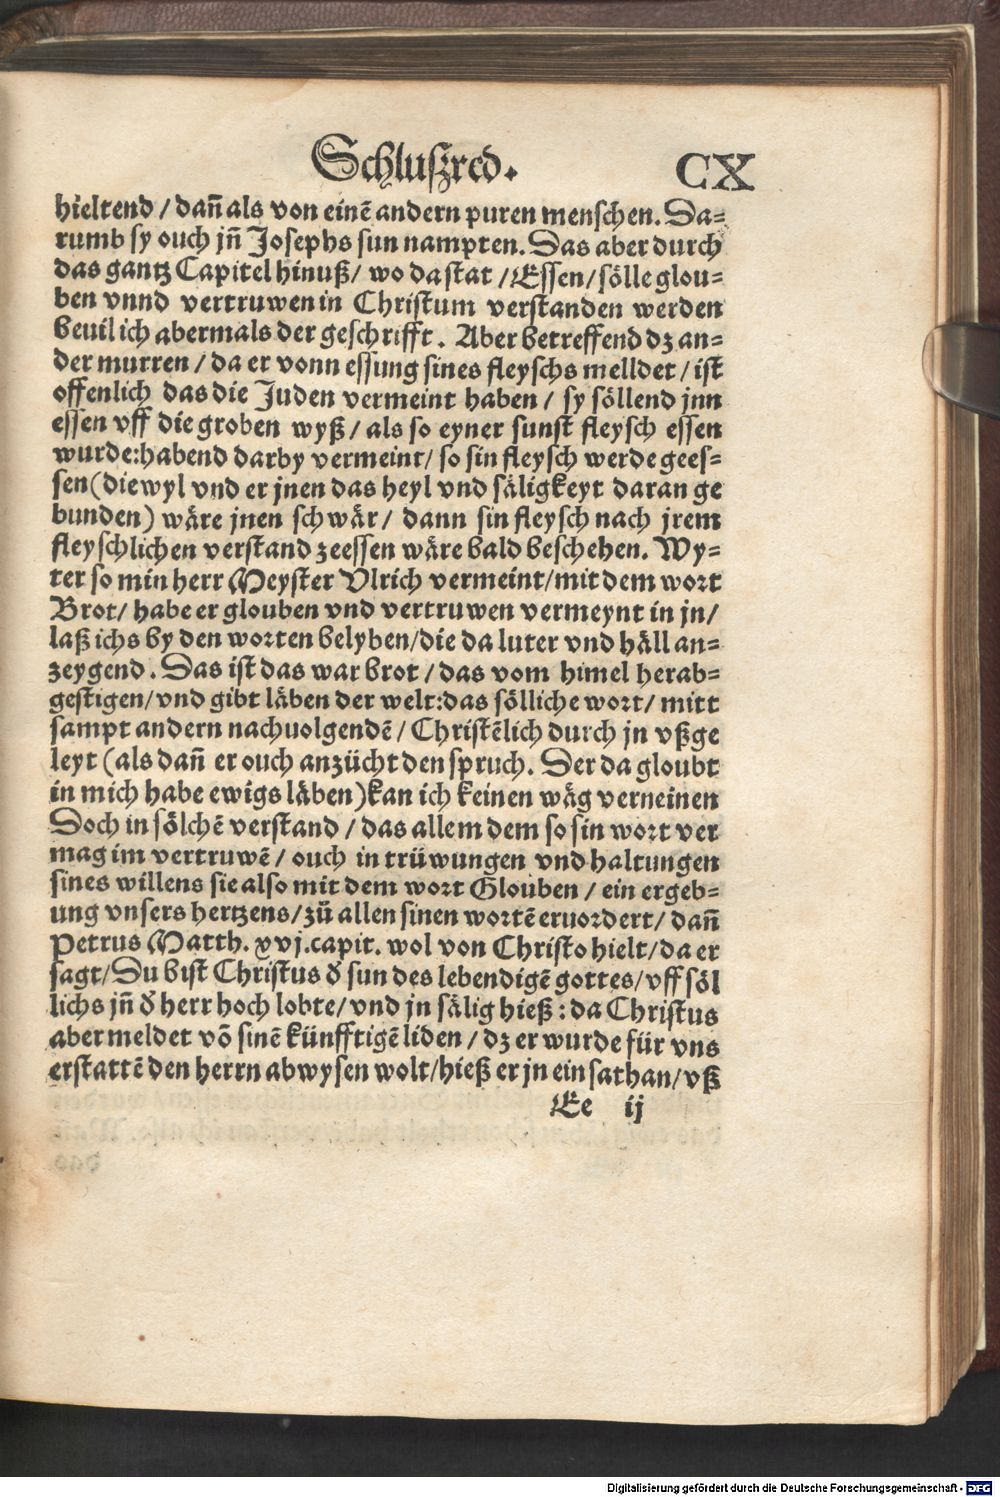 Schlußred. CX
hieltend / dañ als von einē andern puren menschen. Da=
rumb sy ouch jñ Josephs sun nampten. Das aber durch
das gantz Capitel hinuß / wo da stat / Essen / sölle glou=
ben vnnd vertruwen in Christum verstanden werden
beuil ich abermals der geschrifft. Aber betreffend dz an=
der murren / da er vonn essung sines fleyschs melldet / ist
offenlich das die Juden vermeint haben / sy söllend jnn
essen vff die groben wyß / als so eyner sunst fleysch essen
wurde: habend darby vermeint / so sin fleysch werde gees=
sen (diewyl vnd er jnen das heyl vnd säligkeyt daran ge
bunden) wäre jnen schwär / dann sin fleysch nach jrem
fleyschlichen verstand zeessen wäre bald beschehen. Wy=
ter so min herr Meyster Vlrich vermeint / mit dem wort
Brot / habe er glouben vnd vertruwen vermeynt in jn /
laß ichs by den worten belyben / die da luter vnd häll an=
zeygend. Das ist das war brot / das vom himel herab=
gestigen / vnd gibt läben der welt: das sölliche wort / mitt
sampt andern nachuolgendē / Christēlich durch jn vßge
leyt (als dañ er ouch anzücht den spruch. Der da gloubt
in mich habe ewigs läben) kan ich keinen wäg verneinen
Doch in sölchē verstand / das allem dem so sin wort ver
mag im vertruwē / ouch in trüwungen vnd haltungen
sines willens sie also mit dem wort Glouben / ein ergeb=
ung vnsers hertzens / zů allen sinen wortē eruordert / dañ
Petrus Matth. xvj. capit. wol von Christo hielt / da er
sagt / Du bist Christus ð sun des lebendigē gottes / vff söl
lichs jñ ð herr hoch lobte / vnd jn sälig hieß : da Christus
aber meldet võ sinē künfftigē liden / dz er wurde für vns
erstattē den herrn abwysen wolt / hieß er jn ein sathan / vß
Ee ij
Digitalisierung gefördert durch die Deutsche Forschungsgemeinschaft - DFG